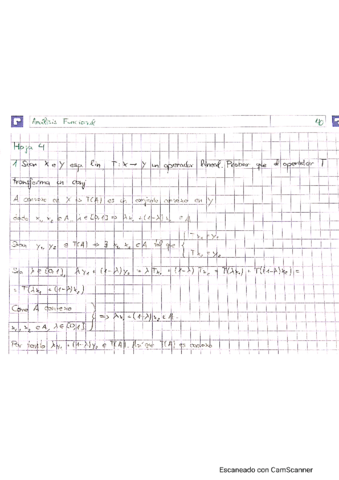 Análisis Funcional
Hoja 4
1. Sean X e Y esp. lin. T: X → Y un operador lineal. Probar que el operador T
transforma un conj
A convexo de X ⇒ T(A) es un conjunto convexo en Y
dado x₁, x₂ ∈ A, λ ∈ [0,1] ⇒ λx₁ + (1-λ)x₂ ∈ A
Sean y₁, y₂ ∈ T(A) ⇒ ∃ x₁, x₂ ∈ A tal que { Tx₁ = y₁
Tx₂ = y₂
Sea λ ∈ [0,1], λy₁ + (1-λ)y₂ = λTx₁ + (1-λ)Tx₂ = T(λx₁) + T((1-λ)x₂) =
= T(λx₁ + (1-λ)x₂)
Como A convexo
x₁, x₂ ∈ A, λ ∈ [0,1] } ⇒ λx₁ + (1-λ)x₂ ∈ A.
Por tanto λy₁ + (1-λ)y₂ ∈ T(A). Así que T(A) es convexo
Escaneado con CamScanner